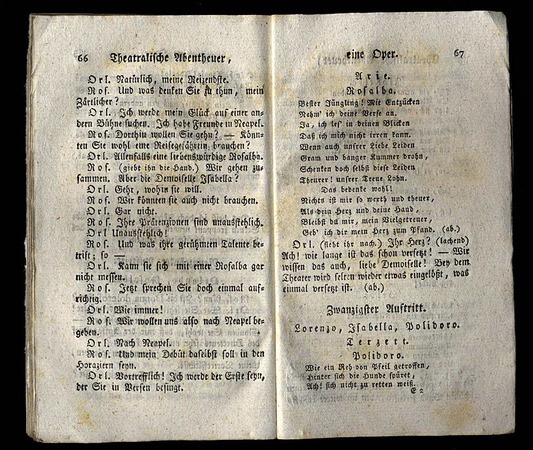 66 Theatralische Abentheuer,
Orl. Natürlich, meine Reizendste.
Ros. Und was denken Sie zu thun, mein
Zärtlicher?
Orl. Ich werde mein Glück auf einer an-
dern Bühne suchen. Ich habe Freunde in Neapel.
Ros. Dorthin wollen Sie gehn? — Könn-
ten Sie wohl eine Reisegefährtin brauchen?
Orl. Allenfalls eine liebenswürdige Rosalba.
Ros. (giebt ihn die Hand.) Wir gehen zu-
sammen. Aber die Demoiselle Isabella?
Orl. Geht, wohin sie will.
Ros. Wir könnten sie auch nicht brauchen.
Orl. Gar nicht.
Ros. Ihre Prätenzionen sind unausstehlich.
Orl Unausstehlich!
Ros. Und was ihre gerühmten Talente be-
trift; so —
Orl. Kann sie sich mit einer Rosalba gar
nicht messen.
Ros. Jetzt sprechen Sie doch einmal auf-
richtig.
Orl. Wie immer!
Ros. Wir wollen uns also nach Neapel be-
geben.
Orl. Nach Neapel.
Ros. Und mein Debüt daselbst soll in den
Horaziern seyn.
Orl. Vortrefflich! Ich werde der Erste seyn,
der Sie in Versen besingt.
eine Oper. 67
Arie.
Rosalba.
Bester Jüngling! Mit Entzücken
Nehm' ich deine Verse an.
Ja, ich les' in deinen Blicken
Daß ich mich nicht irren kann.
Wenn auch unsrer Liebe Leiden
Gram und banger Kummer drohn,
Schenken doch selbst diese Leiden
Theurer! unsrer Treue Lohn.
Das bedenke wohl!
Nichts ist mir so werth und theuer,
Als dein Herz und deine Hand,
Bleibst du mir, mein Vielgetreuer,
Geb' ich dir mein Herz zum Pfand. (ab.)
Orl. (sieht ihr nach.) Ihr Herz? (lachend)
Ach! wie lange ist das schon versetzt! — Wir
wissen das auch, liebe Demoiselle! Bey dem
Theater wird selten wieder etwas eingelößt, was
einmal versetzt ist. (ab.)
Zwanzigster Auftritt.
Lorenzo, Isabella, Polidoro.
Terzett.
Polidoro.
Wie ein Reh von Pfeil getroffen,
Hinter sich die Hunde spüret,
Ach! sich nicht zu retten weiß.
E 2